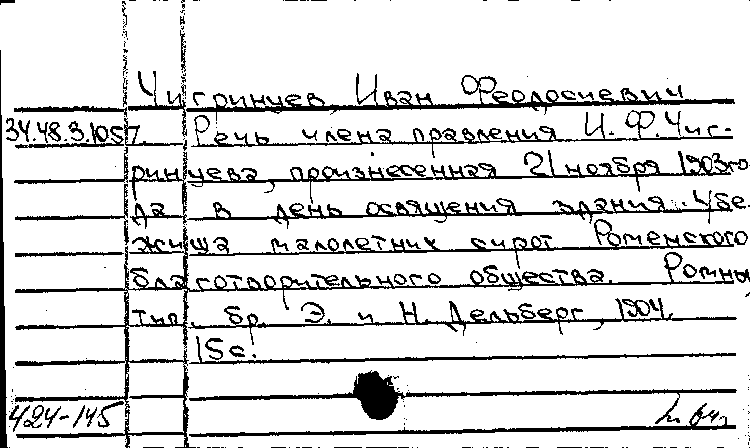 Чигринцев, Иван Феодосиевич
34.48.3.1057. Речь члена правления И.Ф. Чиг-
ринцева, произнесенная 21 ноября 1903 го-
да в день освящения здания убе-
жища малолетних сирот Роменского
благотворительного общества. Ромны,
тип. бр. Э. и Н. Дельберг, 1904.
15с.
424-145